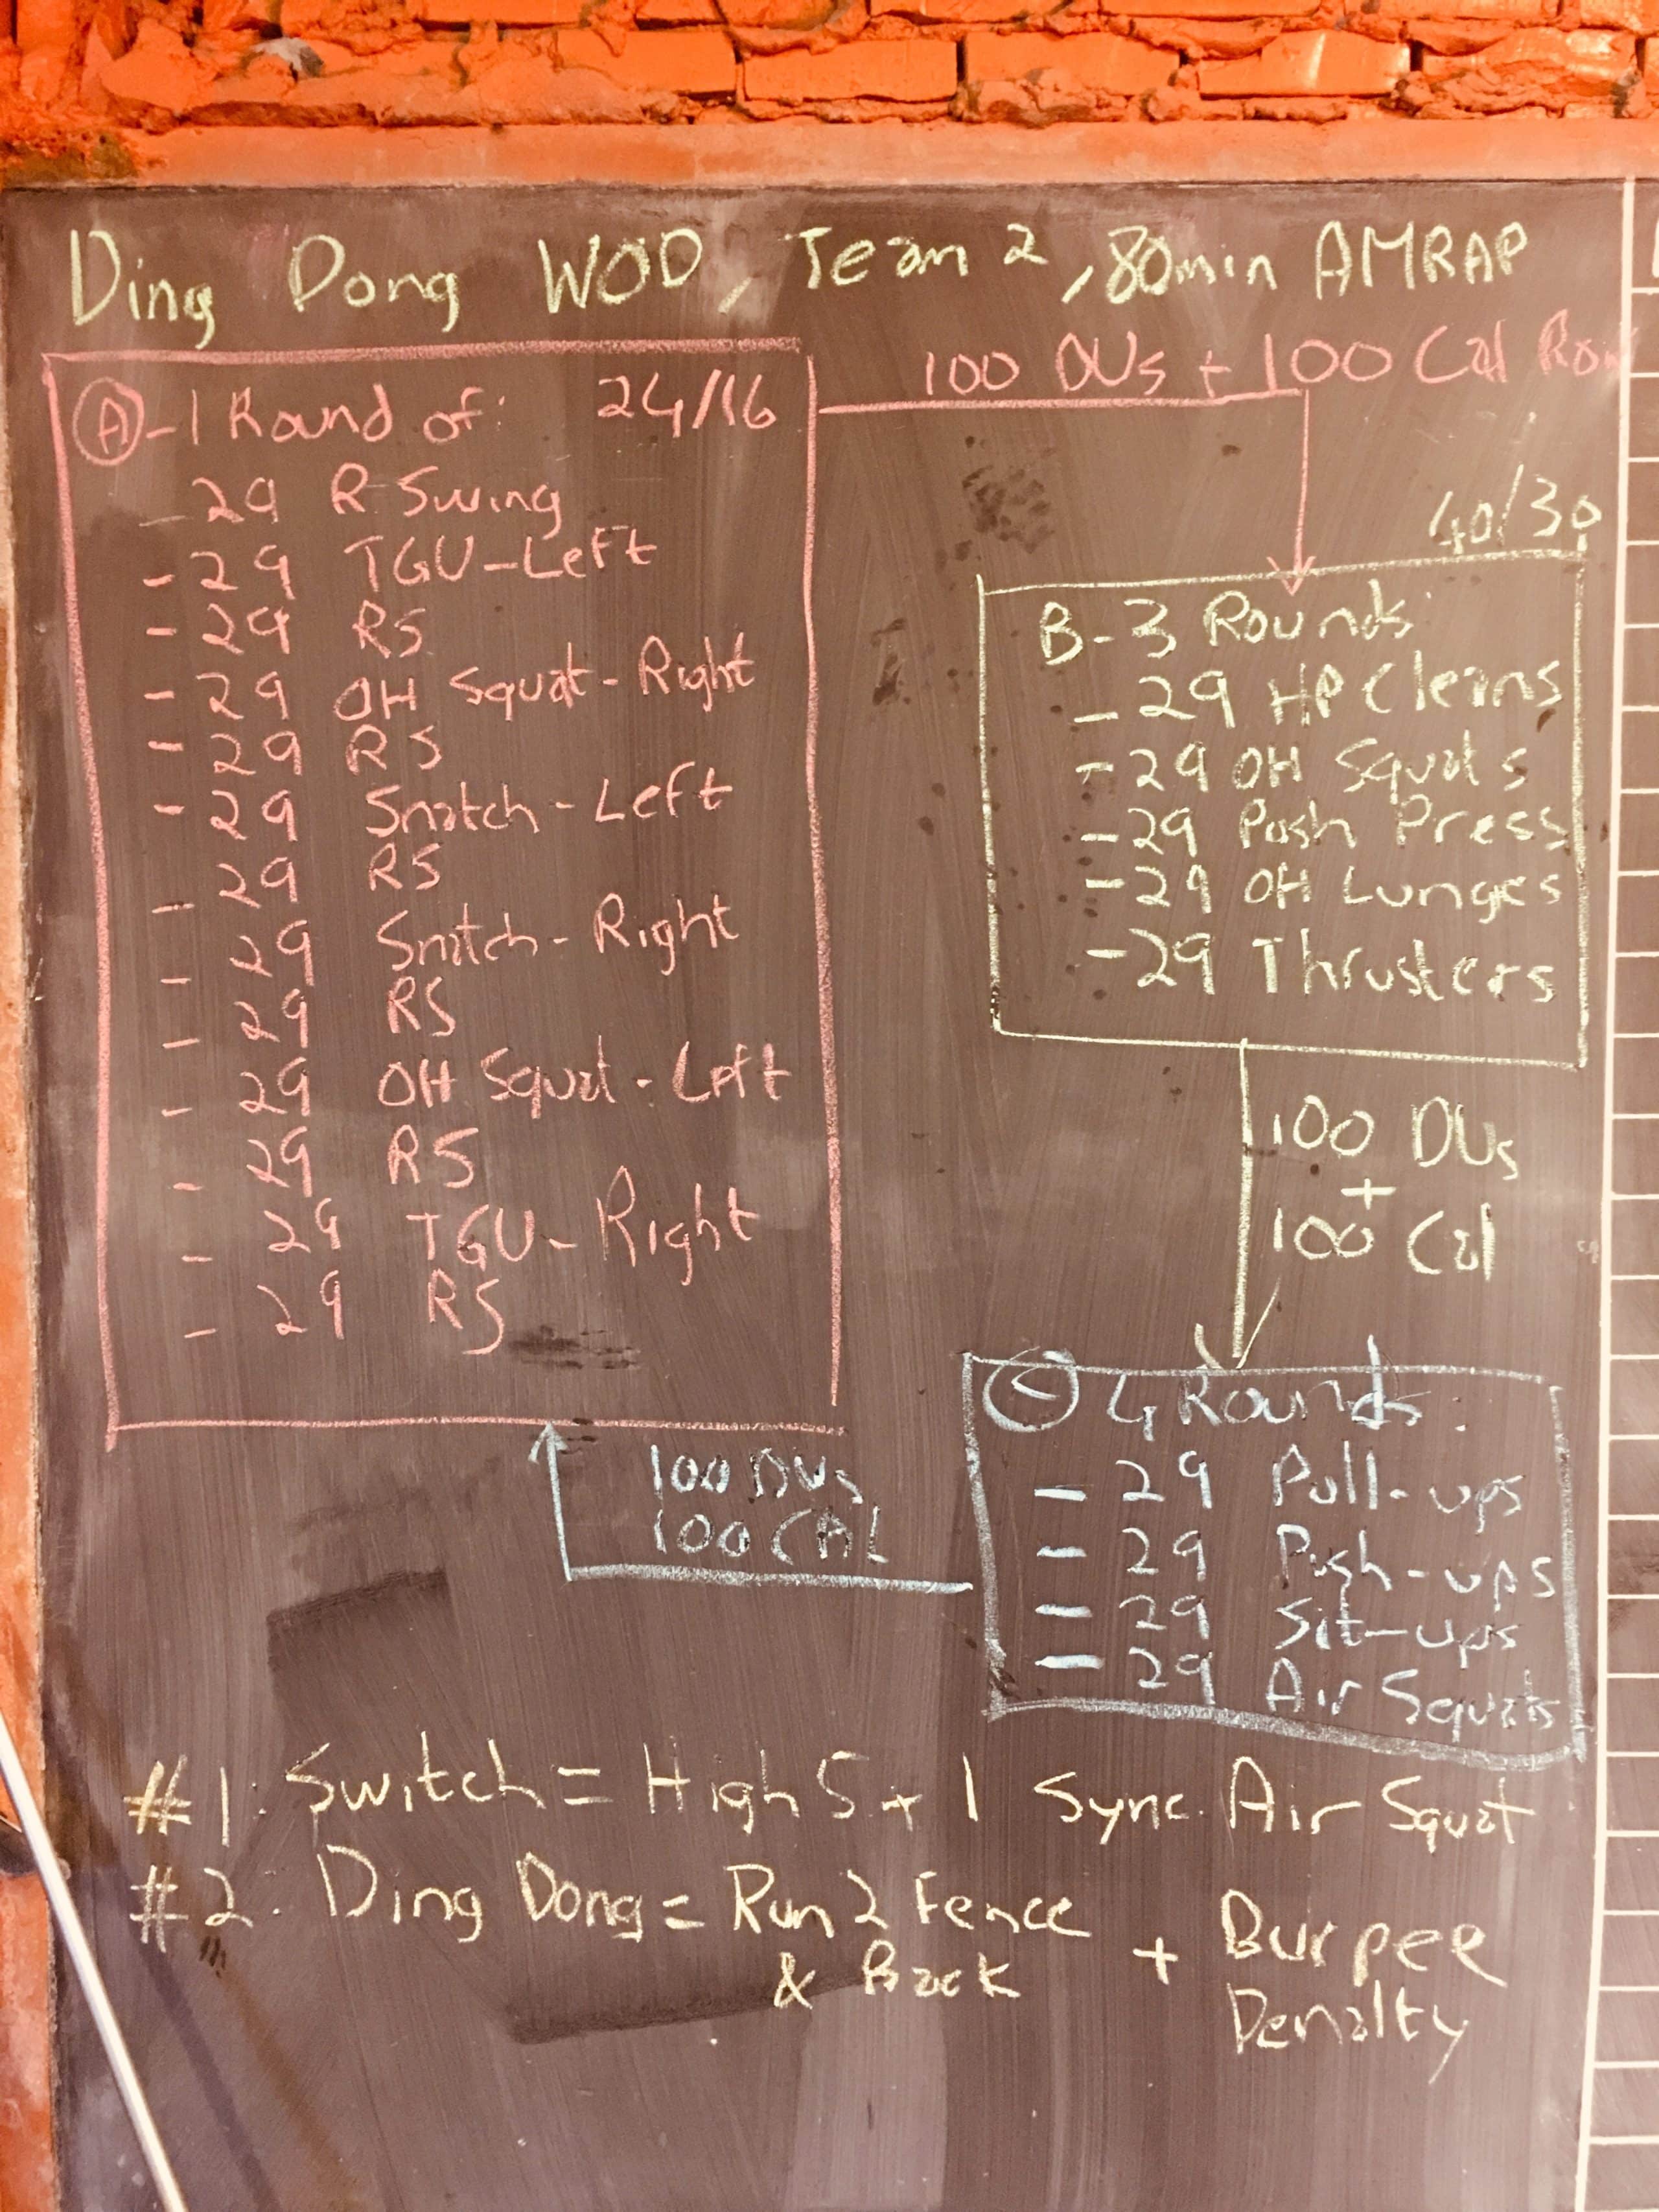 Ding Dong WOD, Team 2, 80min AMRAP
100 DUs + 100 Cal Row
A - 1 Round of: 24/16
- 29 R Swing
- 29 TGU - Left
- 29 RS
- 29 OH Squat - Right
- 29 RS
- 29 Snatch - Left
- 29 RS
- 29 Snatch - Right
- 29 RS
- 29 OH Squat - Left
- 29 RS
- 29 TGU - Right
- 29 RS
40/30
B - 3 Rounds:
- 29 HP Cleans
- 29 OH Squats
- 29 Push Press
- 29 OH Lunges
- 29 Thrusters
100 DUs
+
100 Cal
C 4 Rounds:
- 29 Pull-ups
- 29 Push-ups
- 29 Sit-ups
- 29 Air Squats
100 DUs
100 CAL
#1: Switch = High 5 + 1 Sync. Air Squat
#2: Ding Dong = Run 2 Fence
& Back + Burpee
Penalty